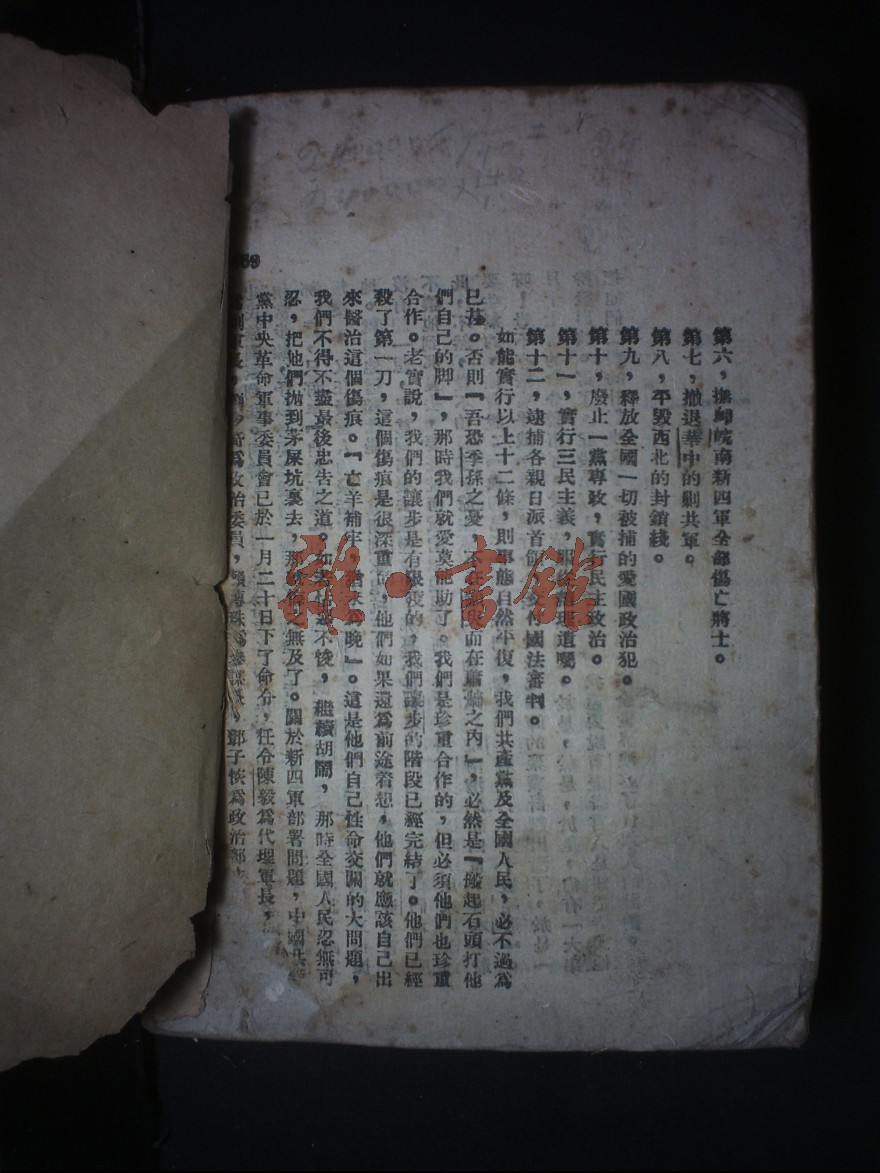 第六，撫卹皖南新四軍全部傷亡將士。
第七，撤退華中的剿共軍。
第八，平毀西北的封鎖綫。
第九，釋放全國一切被捕的愛國政治犯。
第十，廢止一黨專政，實行民主政治。
第十一，實行三民主義，服從總理遺囑。
第十二，逮捕各親日派首領，交付國法審判。
如能實行以上十二條，則事態自然平復，我們共產黨及全國人民，必不過為
已甚。否則「吾恐季孫之憂，不在而在蕭牆之內」，必然是「搬起石頭打他
們自己的脚」，那時我們就愛莫能助了。我們是珍重合作的，但必須他們也珍重
合作。老實說，我們的讓步是有限度的，我們讓步的階段已經完結了。他們已經
殺了第一刀，這個傷痕是很深重的，他們如果還為前途着想，他們就應該自己出
來醫治這個傷痕。「亡羊補牢，猶未為晚」。這是他們自己性命交關的大問題，
我們不得不盡最後忠告之道。如若他們不悛，繼續胡鬧，那時全國人民忍無可
忍，把他們抛到茅屎坑裏去，那就悔之無及了。關於新四軍部署問題，中國共
黨中央革命軍事委員會已於一月二十日下了命令，任令陳毅為代理軍長，
為政治委員，為參謀長，鄧子恢為政治部
雜·書館